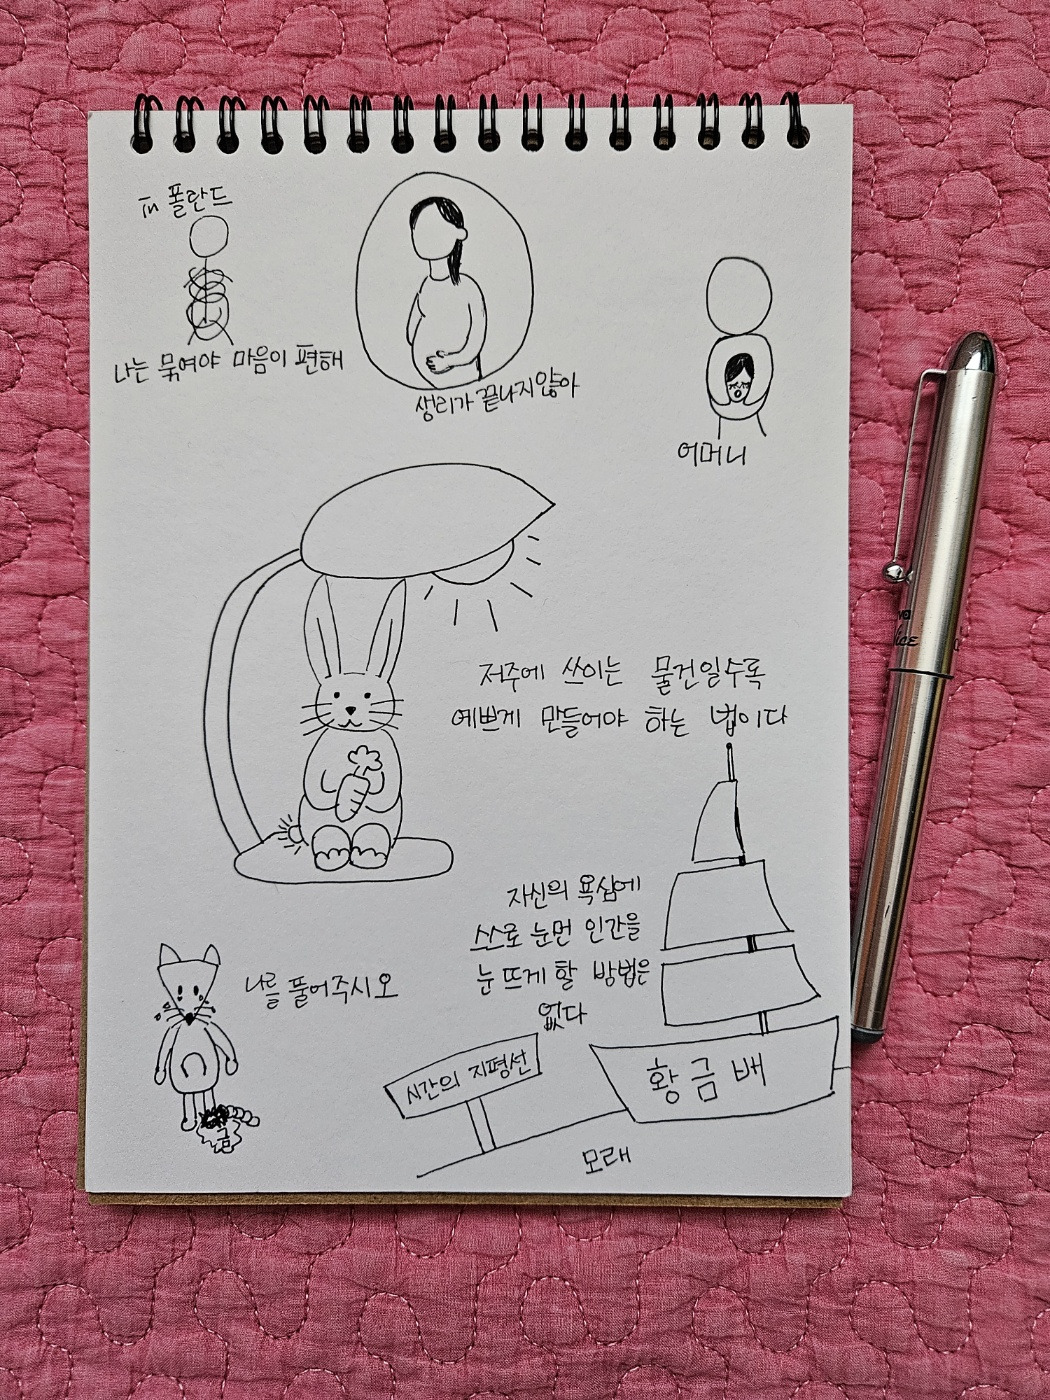 in 폴란드
나는 묶여야 마음이 편해
생리가 끝나지 않아
어머니
저주에 쓰이는 물건일수록
예쁘게 만들어야 하는 법이다
자신의 욕심에
스스로 눈먼 인간을
눈 뜨게 할 방법은
없다
나를 풀어주시오
금
시간의 지평선
황금 배
모래